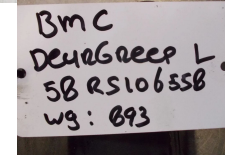 BMC
DEURGREEP L
5BRS106558
wg: 893